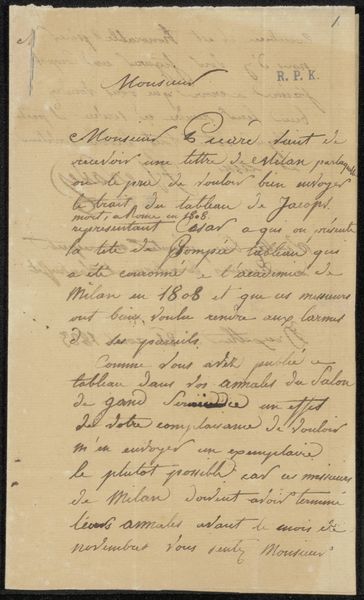 1.
R. P. K.
Monsieur
Monsieur Picaré vient de
recevoir une lettre de Milan par laquelle
on le prie de vouloir bien envoyer
le trait du tableau de Jacops.
mort, a Rome en 1808
representant Cesar a qui on présente
la tete de Pompée tableau qui
a été couronné a l'academie de
Milan en 1808 et que ces messieurs
ont bien voulu rendre aux larmes
de ses parents.
Comme vous avez publié ce
tableau dans vos annales du Salon
de gand un effet
de votre complaisance de vouloir
m'en envoyer un exemplaire
le plutôt possible car ces messieurs
de Milan doivent avoir terminé
leurs annales avant le mois de
novembre vous sentez Monsieur